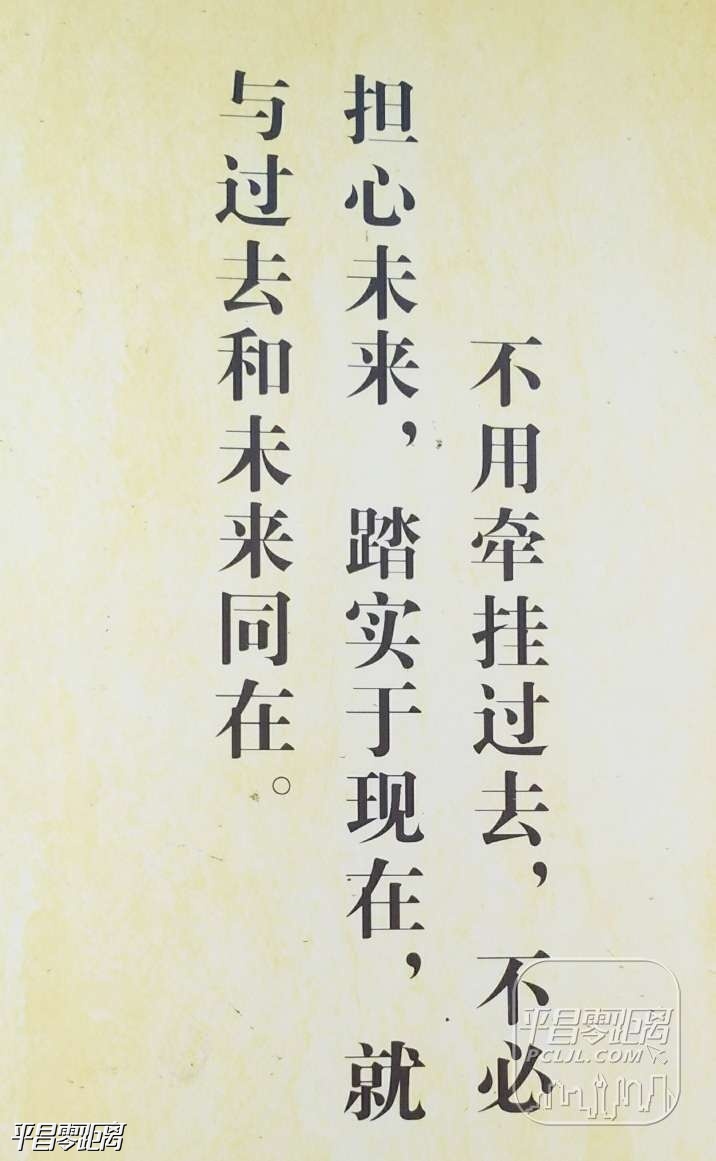 不用牵挂过去,不必
担心未来,踏实于现在,就
与过去和未来同在。
平昌零距离
PCLJL.COM
平昌零距离